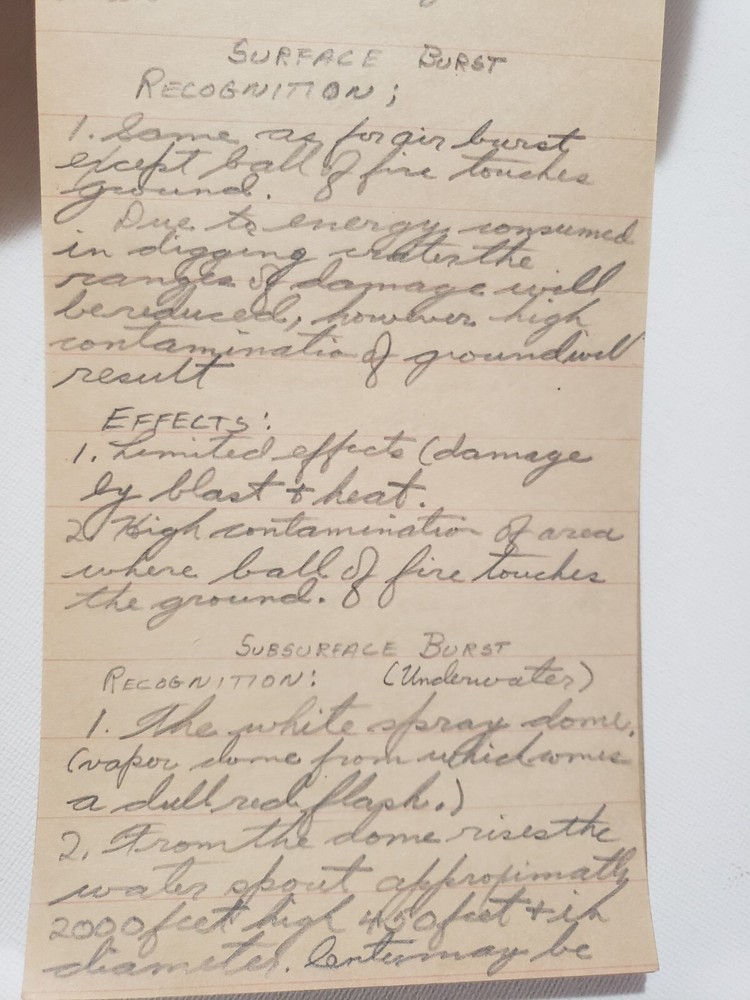 SURFACE BURST
RECOGNITION;
1. Same as for air burst
except ball of fire touches
ground.
Due to energy consumed
in digging crater the
ranges of damage will
be reduced, however high
contaminatio of ground will
result
EFFECTS:
1. Limited effects (damage
by blast + heat.
2. High contamination of area
where ball of fire touches
the ground.
SUBSURFACE BURST
RECOGNITION: (Underwater)
1. The white spray dome.
(vapor dome from which comes
a dull red flash.)
2. From the dome rises the
water spout approximatly
2000 feet high 450 feet + in
diameter. Center may be